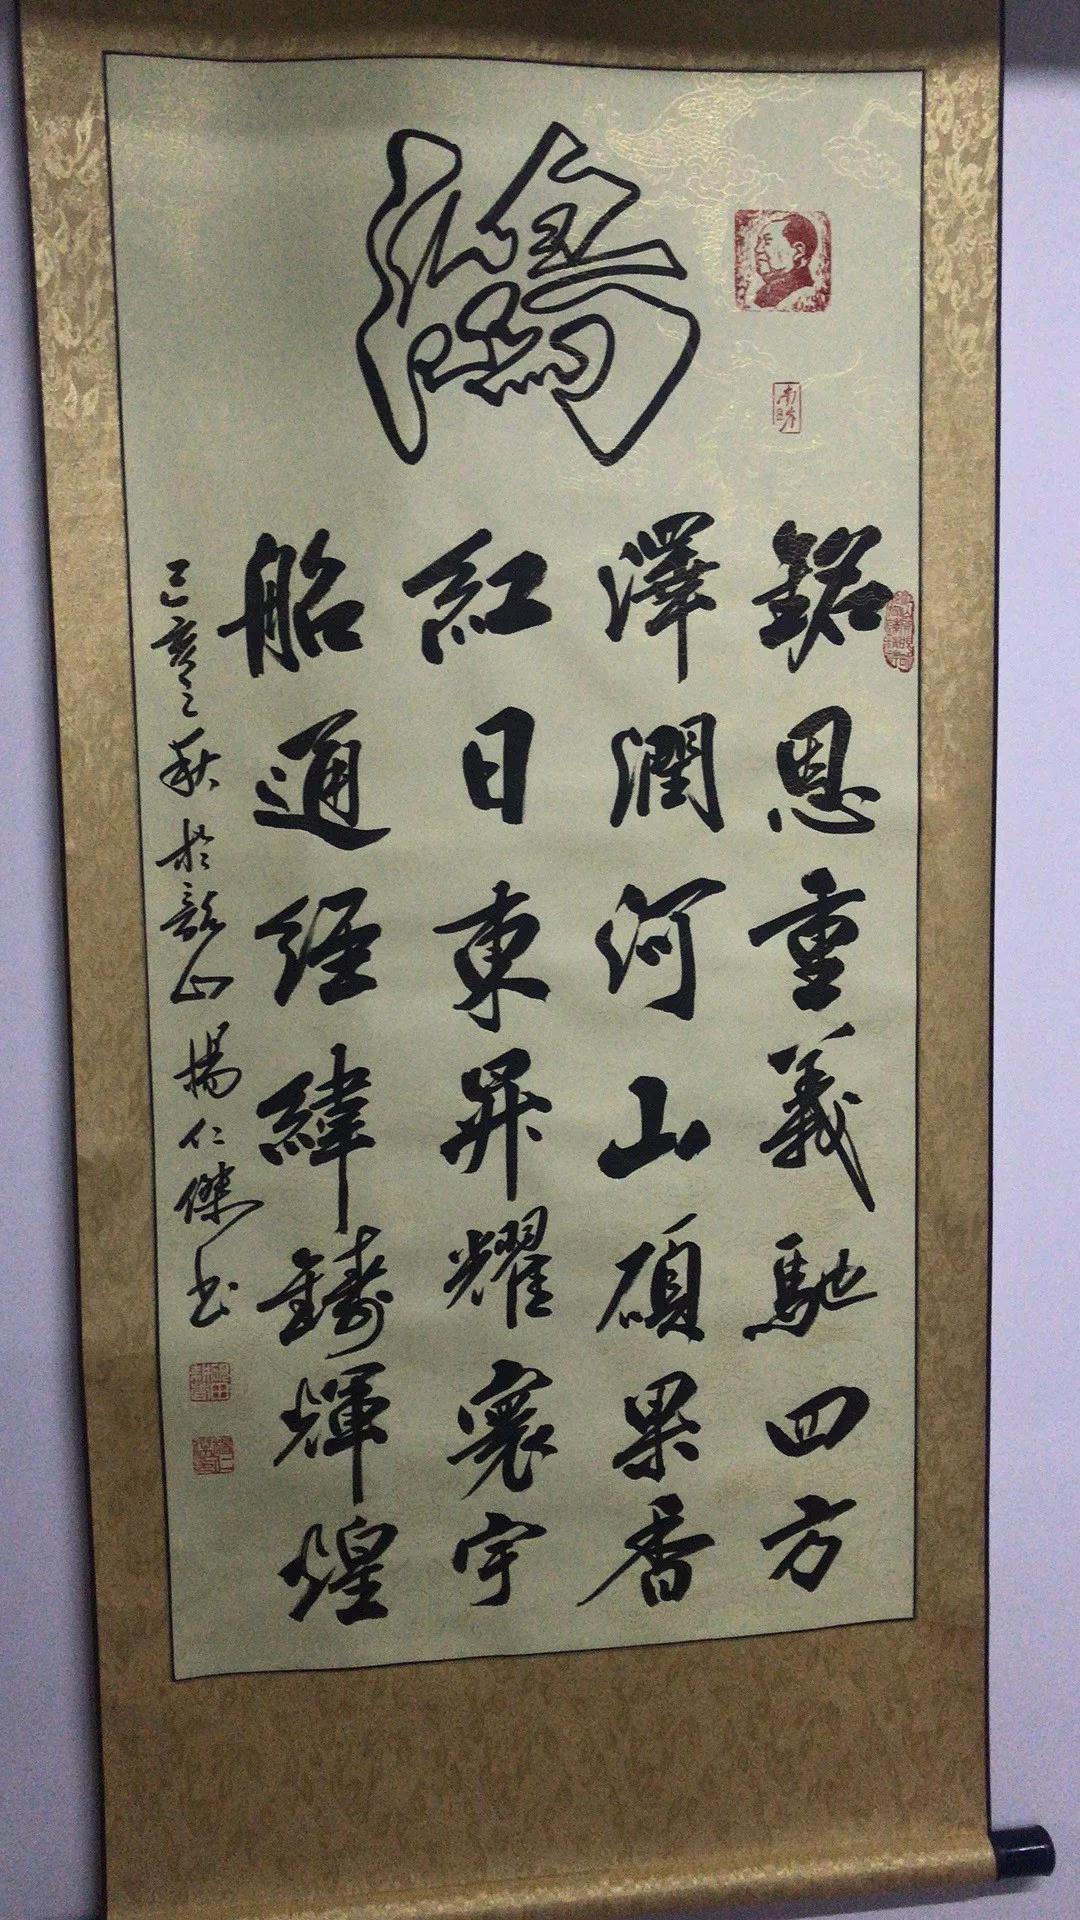 鴻
銘恩重義馳四方
澤潤河山碩果香
紅日東升耀寰宇
船通經緯鑄輝煌
己亥之秋於韶山楊仁傑书